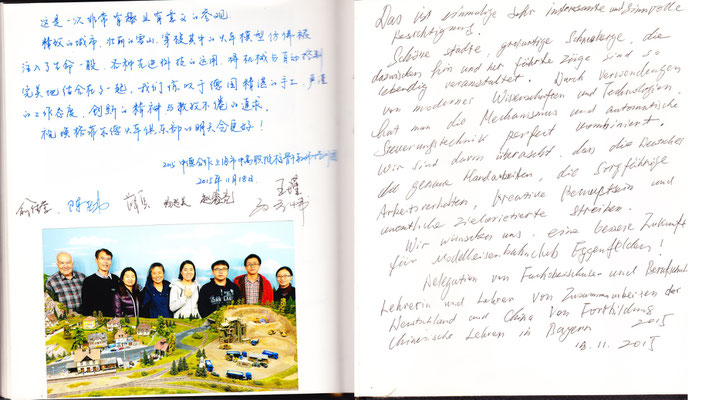 这是一次非常有趣且有意义的参观.
精致的城市、壮丽的雪山、穿梭其中的火车模型仿佛被
注入了生命一般。各种先进科技的运用，将机械与自动控制
完美地结合在了一起。我们惊叹于德国精湛的手工、严谨
的工作态度、创新的精神与孜孜不倦的追求。
祝埃格菲尔德火车俱乐部的明天会更好！
2015 中德合作上海市中高职院校
2015年11月18日
Das ist einmalige sehr interessante und sinnvolle
Besichtigung.
Schöne stadte, grossartige Schneeberge, die
dazwischen hin und her fährte Züge sind so
lebendig veranstaltet. Durch Verwendungen
von modernes Wissenschaften und Technologien
hat man die Mechanismus und automatische
Steuerungstechnik perfect kombiniert.
Wir sind darin überascht, dass die Deutsches
die genaue Handarbeiten, die sorgfährige
Arbeitsverhalten, kreative Bewuptsein und
unentliche zielorientierte streiben.
Wir wünschen uns, eine bessere Zukunft
für Modelleisenbahnclub Eggenfelden!
Delegation von Fachoberschulen und Berufschule
Lehrerin und Lehrer von Zusammarbeiten der
Deutschland und China von Fortbildung
Chinesische Lehren in Bayern 2015
18.11.2015